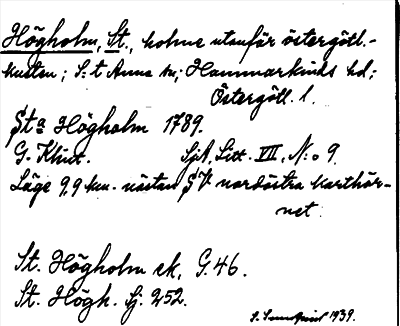 Högholm, St., holme utanför östergötl.-
kusten; S:t Anna sn; Hammarkinds hd;
Östergötl. l.
Sta Högholm 1789.
G. Klint. Sjök. Litt. VII, N:o 9.
Läge 9,9 km. nästan SV nordöstra karthör-
net
St. Högholm ek, G. 46.
St. Högh. Gj. 252.
1939.